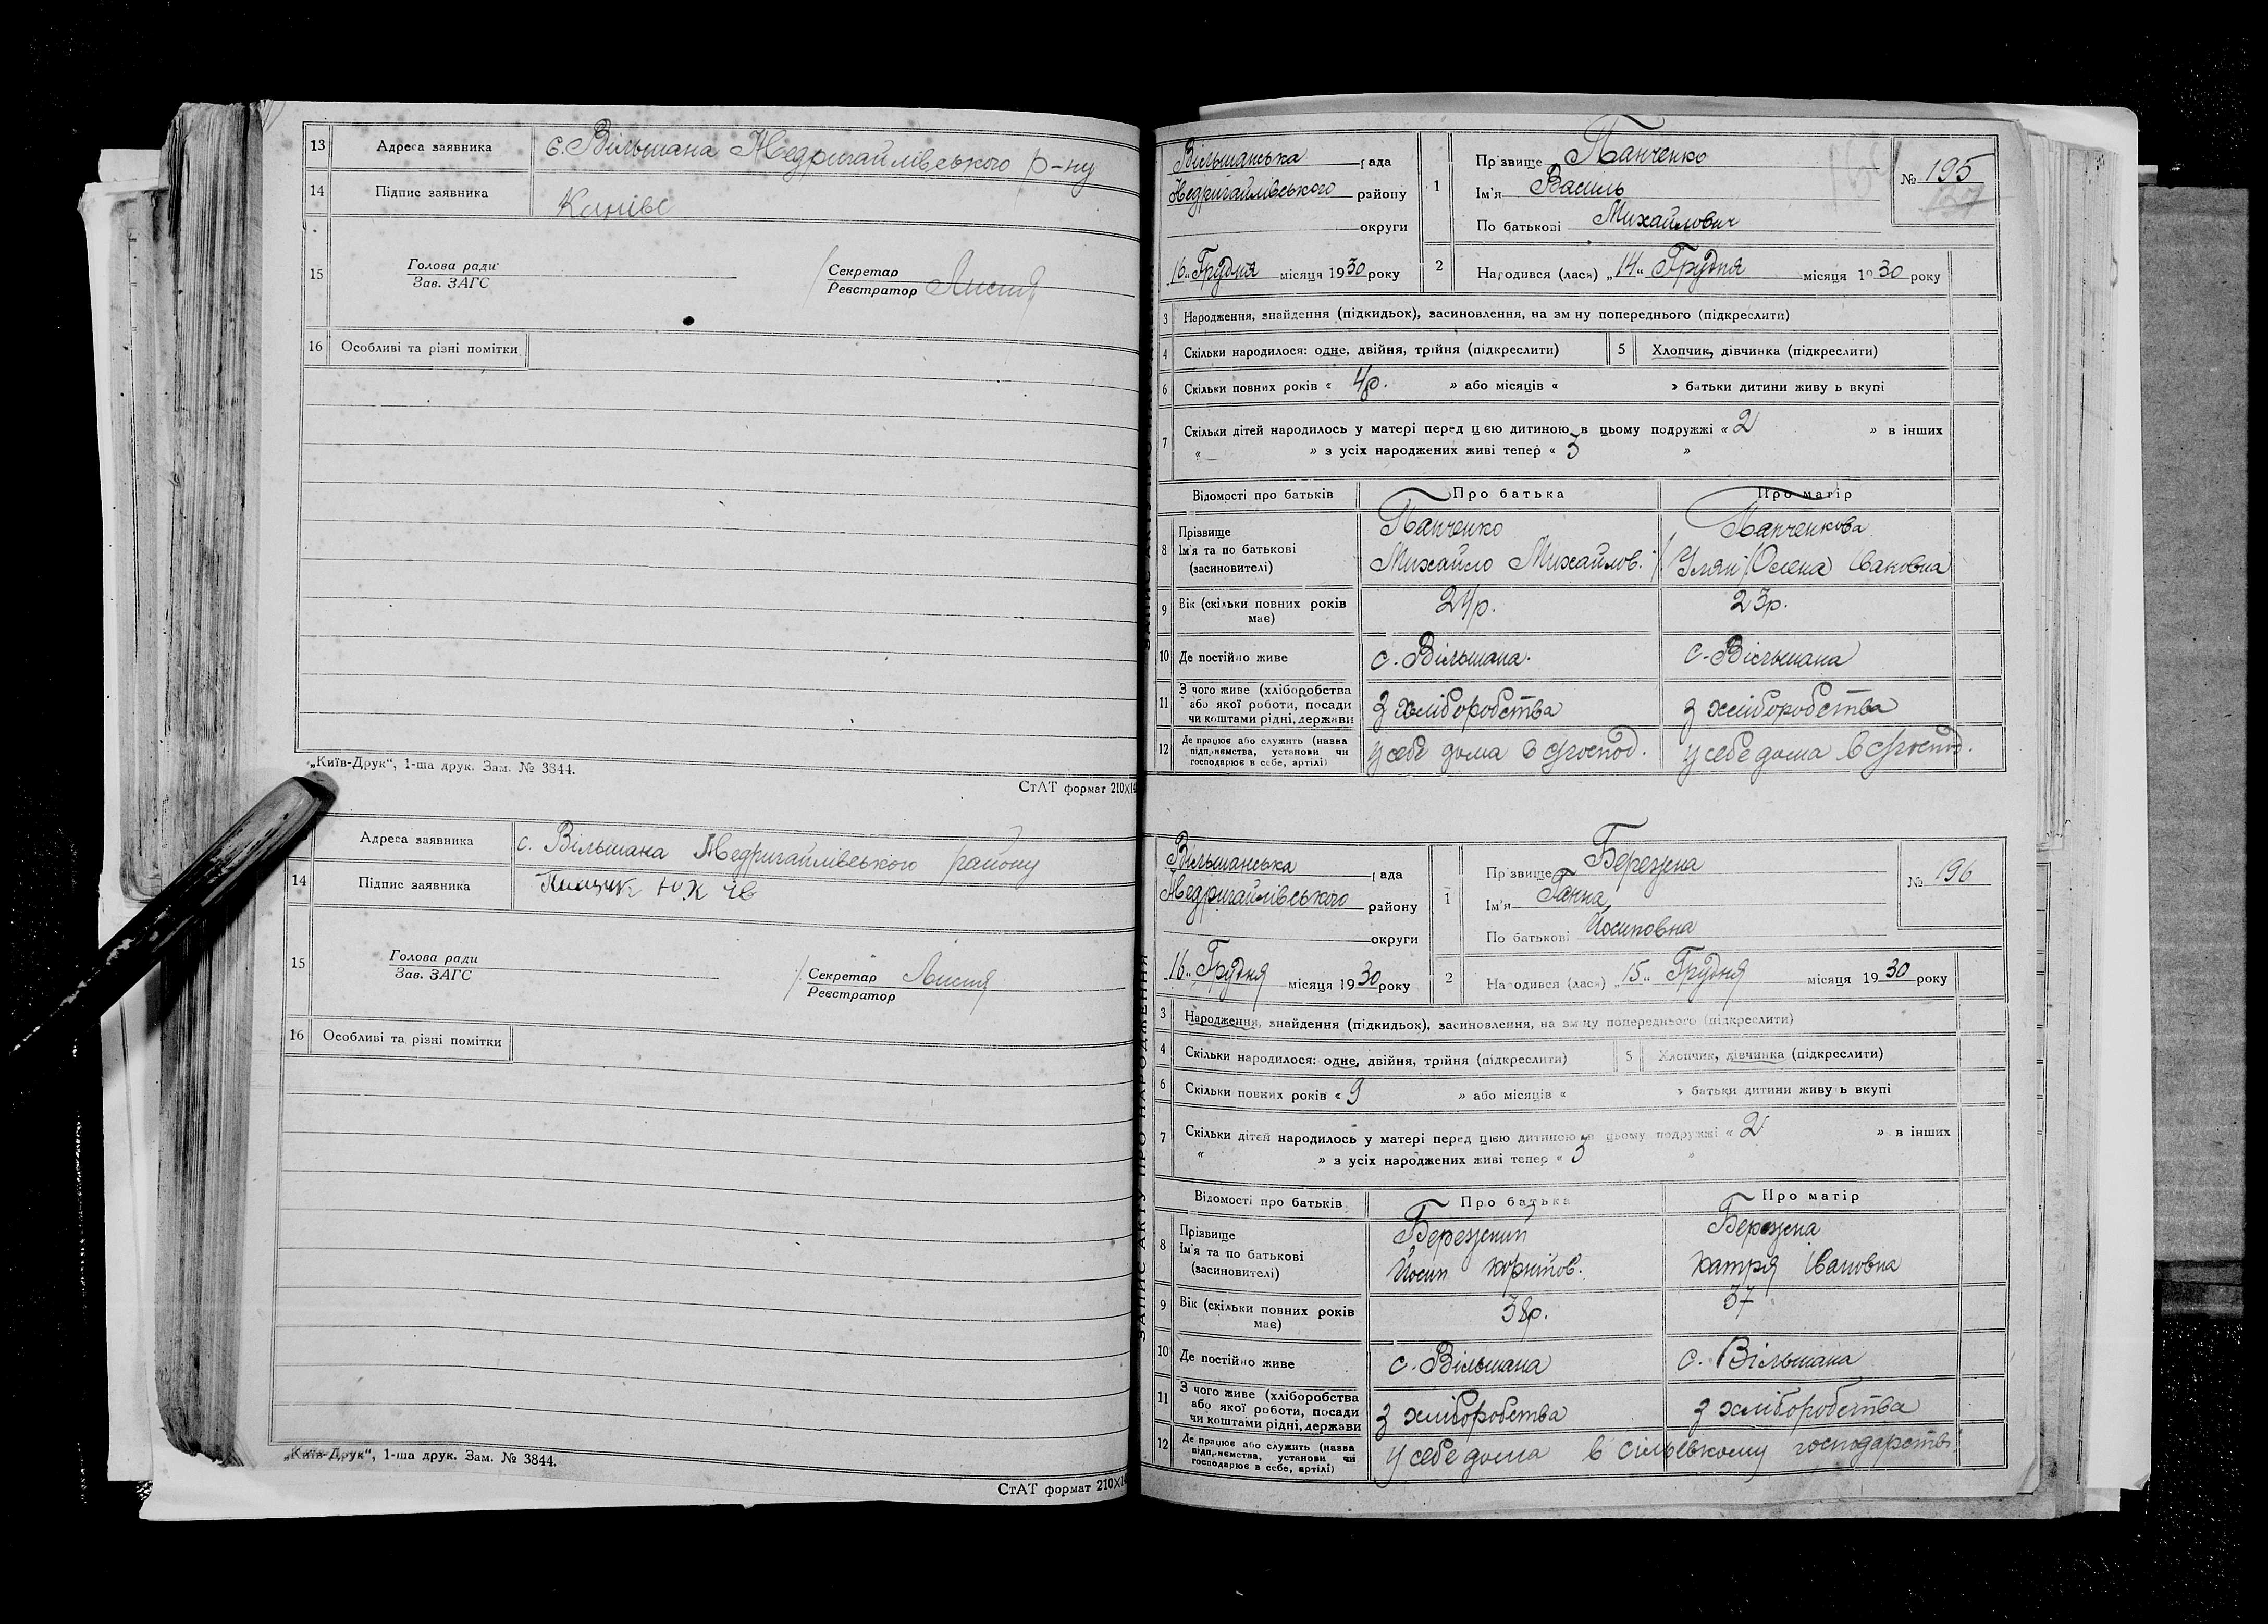 13 Адреса заявника с. Вільшана Недригайлівського р-ну
14 Підпис заявника Канівс
15 Голова ради
Зав. ЗАГС
Секретар
Реєстратор
16 Особливі та різні помітки
„Київ-Друк“, 1-ша друк. Зам. № 3844.
СтАТ формат 210×14
Адреса заявника с. Вільшана Недригайлівського району
14 Підпис заявника
15 Голова ради
Зав. ЗАГС
Секретар
Реєстратор
16 Особливі та різні помітки
„Київ-Друк“, 1-ша друк. Зам. № 3844.
СтАТ формат 210×14
ЗАПИС АКТУ ПРО НАРОДЖЕННЯ
Вільшанська рада
Недригайлівського району
округи
„16„ Грудня місяця 1930 року
1 Прізвище Панченко
Ім'я Василь
По батькові Михайлович
№ 195
2 Народився (лася) „14„ Грудня місяця 1930 року
3 Народження, знайдення (підкидьок), засиновлення, на зміну попереднього (підкреслити)
4 Скільки народилося: одне, двійня, трійня (підкреслити) 5 Хлопчик, дівчинка (підкреслити)
6 Скільки повних років « 4р. » або місяців « » батьки дитини живуть вкупі
7 Скільки дітей народилось у матері перед цією дитиною в цьому подружжі « 2 » в інших
« » з усіх народжених живі тепер « 3 »
Відомості про батьків Про батька Про матір
8 Прізвище Панченко Панченкова
Ім'я та по батькові Михайло Михайлов. Улян (Олена) Івановна
(засновителі)
9 Вік (скільки повних років має) 24р. 23р.
10 Де постійно живе с. Вільшана. с. Вільшана
11 З чого живе (хліборобства або якої роботи, посади чи коштами рідні, держави з хліборобства з хліборобства
12 Де працює або служить (назва підприємства, установи чи господарює в себе, артілі) у себе дома в с/господ. у себе дома в с/господ.
Вільшанська рада
Недригайлівського району
округи
„16„ Грудня місяця 1930 року
1 Прізвище Бережна
Ім'я Ганна
По батькові Йосиповна
№ 196
2 Народився (лася) „15„ Грудня місяця 1930 року
3 Народження, знайдення (підкидьок), засиновлення, на зміну попереднього (підкреслити)
4 Скільки народилося: одне, двійня, трійня (підкреслити) 5 Хлопчик, дівчинка (підкреслити)
6 Скільки повних років « 9 » або місяців « » батьки дитини живуть вкупі
7 Скільки дітей народилось у матері перед цією дитиною в цьому подружжі « 2 » в інших
« » з усіх народжених живі тепер « 3 »
Відомості про батьків Про батька Про матір
8 Прізвище Бережний Бережна
Ім'я та по батькові Йосип Корнійов. Катря Івановна
(засиновителі)
9 Вік (скільки повних років має) 38р. 37
10 Де постійно живе с. Вільшана с. Вільшана
11 З чого живе (хліборобства або якої роботи, посади чи коштами рідні, держави з хліборобства з хліборобства
12 Де працює або служить (назва підприємства, установи чи господарює в себе, артілі) у себе дома в сільськкому господарстві